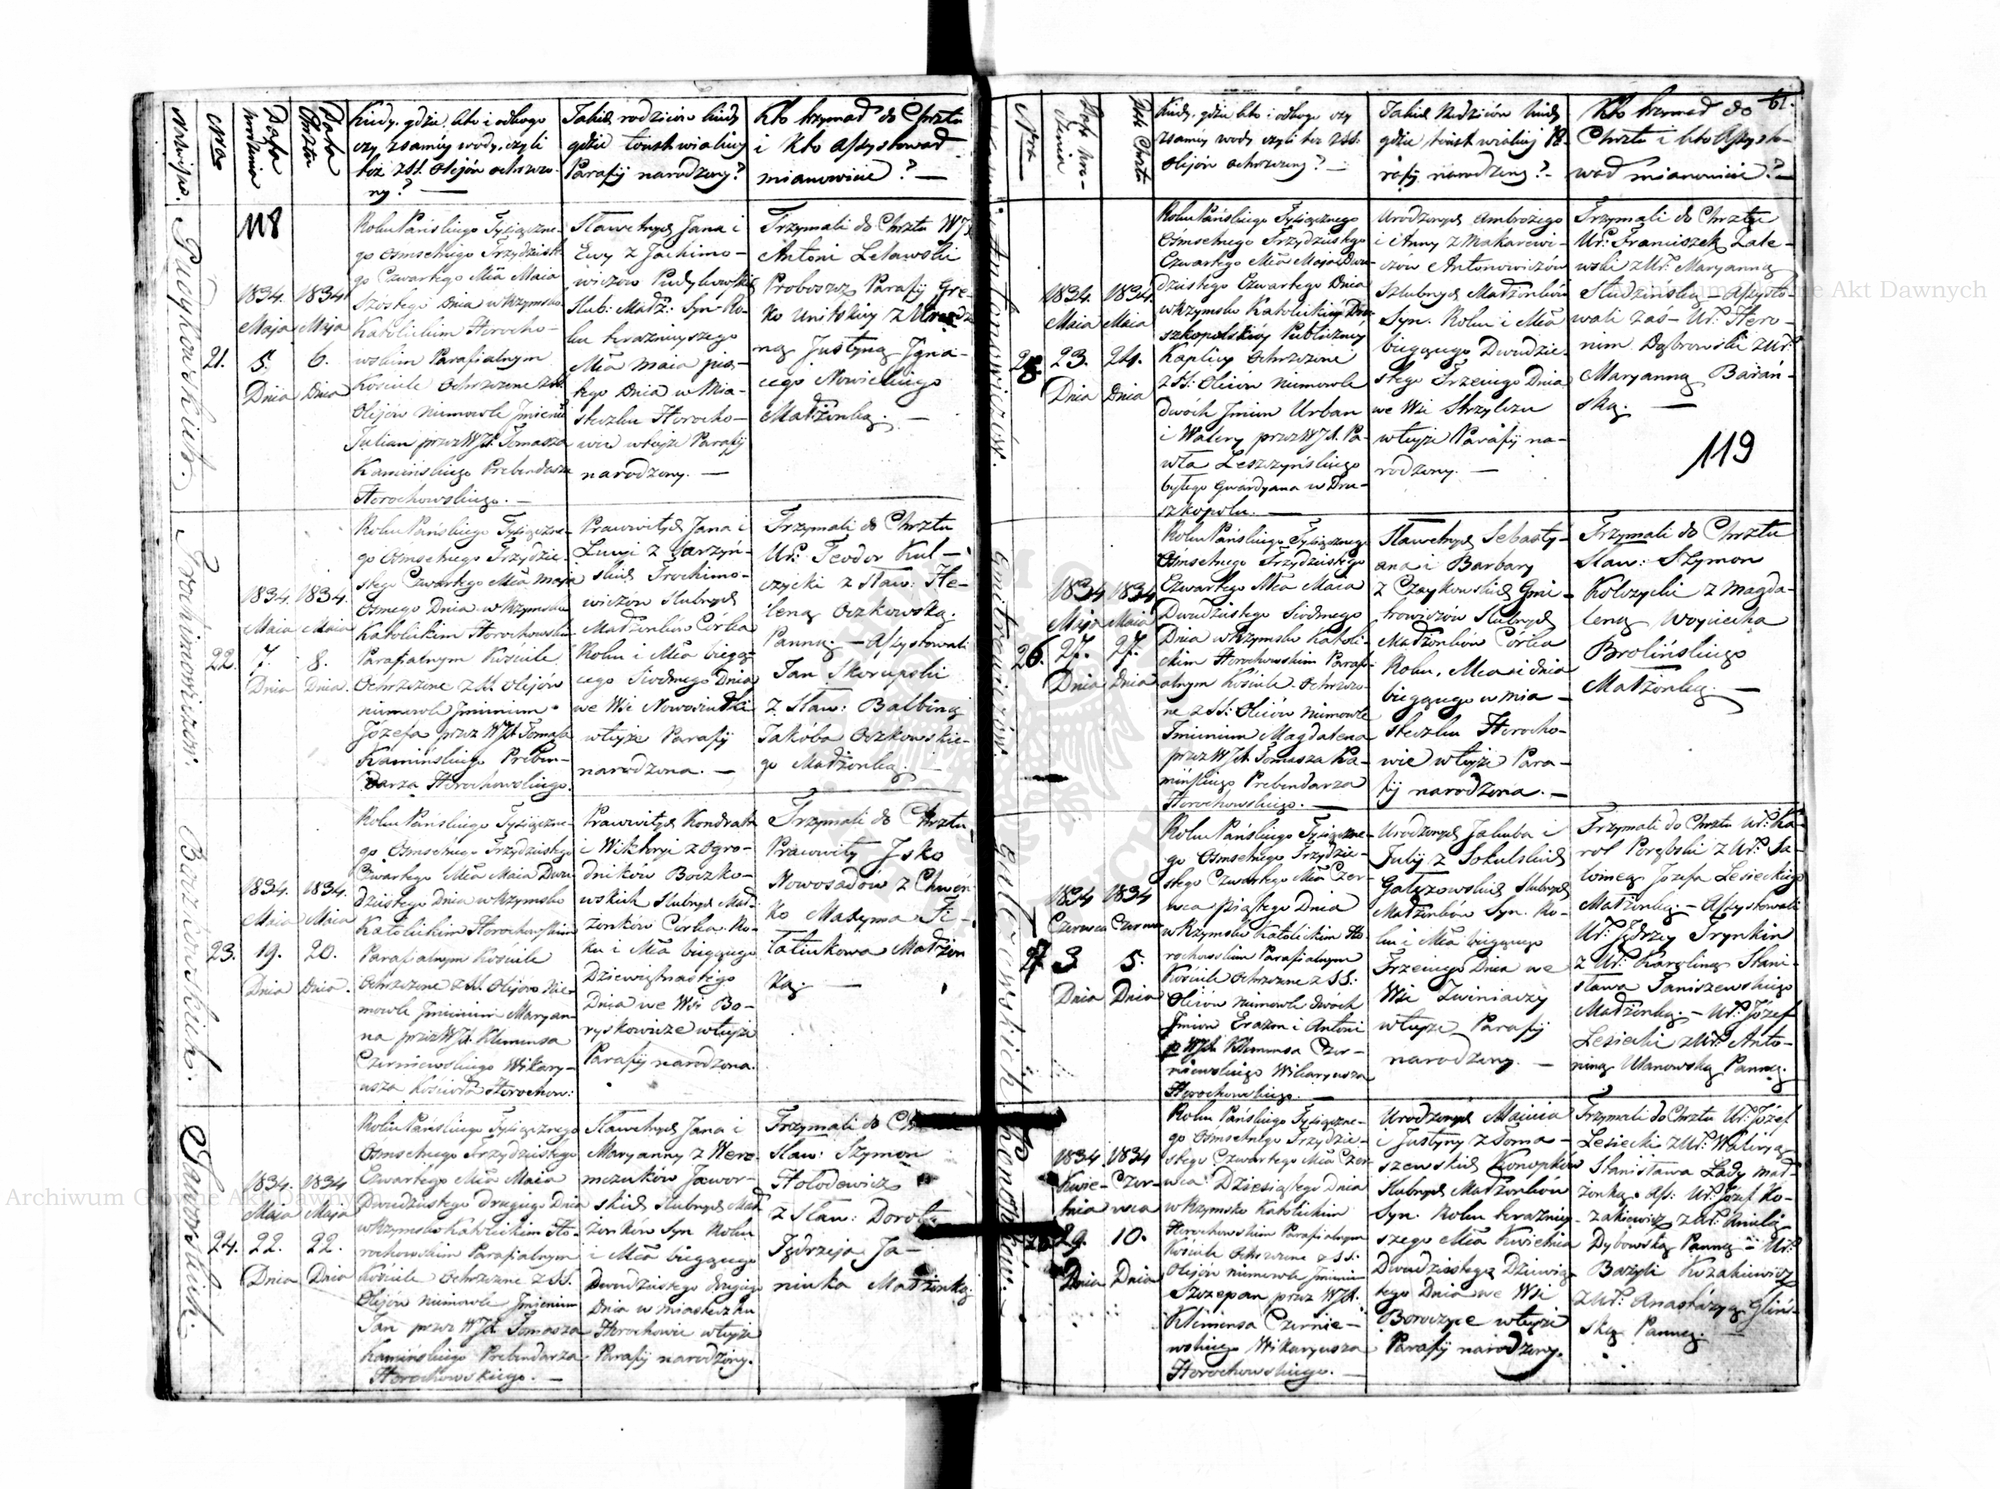 Nazwisko.
Nro
Data urodzenia
Data Chrztu
Kiedy, gdzie, kto i od kogo
czy z samey wody, czyli
też z SS. Olejów ochrzczo-
ny? —
Jakich rodziców kiedy
gdzie w teyże
Parafij narodzony?
Kto trzymał do Chrztu
i kto assystował
mianowicie? —
118
Pudykowskich.
21.
1834.
Maja
5.
Dnia
1834
Maja
6.
Dnia
Roku Pańskiego Tysiączne-
go Osmsetnego Trzydziest-
go Czwartego Mca Maia
Szóstego Dnia w Rzymsko
Katolickim Horocho-
wskim Parafialnym
Kościele Ochrzczone z SS.
Olejów niemowle Imieniem
Julian przez WJX. Tomasza
Kamińskiego Prebendarza
Horochowskiego. —
Sławetnych Jana i
Ewy z Jachimo-
wiczów Pudykowskich
Ślub: Małż: Syn Ro-
ku teraznieyszego
Mca Maia pią-
tego Dnia w Mia-
steczku Horocho-
wie w teyże Parafij
narodzony. —
Trzymali do Chrztu WJX
Antoni Lekawski
Proboszcz Parafij Gre-
ko Unitskiey z
Justyną Igna-
cego Nowickiego
Małżonką. —
Trochimowiczów.
22.
1834.
Maia
7.
Dnia
1834.
Maia
8.
Dnia.
Roku Pańskiego Tysiączne-
go Osmsetnego Trzydzie-
stego Czwartego Mca Maja
Osmego Dnia w Rzymsko
Katolickim Horochowskim
Parafialnym Kościele
Ochrzczone z SS. Olejów
niemowle Imieniem
Józefa przez WJX Tomasza
Kamińskiego Preben-
darza Horochowskiego.
Prawowitych Jana i
Łucyi z Jarzyń-
skich Trochimo-
wiczów Ślubnych
Małżonków Córka
Roku i Mca bieżą-
cego Siodmego Dnia
we Wsi Nowosiułki
w teyże Parafij
narodzona. —
Trzymali do Chrztu
Ur: Teodor Kul-
czycki z Sław: He-
leną Oczkowską
Panną. — Assystowali
Jan Skorupski
z Sław: Balbiną
Jakóba Oczkowskie-
go Małżonką. —
Boczkowskich.
23.
1834.
Maia
19.
Dnia
1834.
Maia
20.
Dnia.
Roku Pańskiego Tysiączne-
go Osmsetnego Trzydziestego
Czwartego Mca Maia Dwu-
dziestego Dnia w Rzymsko
Katolickim Horochowskim
Parafialnym Kościele
Ochrzczone z SS. Olejów Nie-
mowle Imieniem Maryan-
na przez WJX. Klemensa
Czerniewskiego Wikary-
usza Kościoła Horochow:
Prawowitych Kondrata
i Wiktoryi z Ogro-
dników Boczko-
wskich Ślubnych Mał-
żonków Córka Ro-
ku i Mca bieżącego
Dziewiętnastego
Dnia we Wsi Bo-
ryskowicze w teyże
Parafij narodzona.
Trzymali do Chrztu
Prawowity Jsko
Nowosadów z Chweń-
ko Maxyma Fi-
latiukowa Małżon
ką. —
Jaworskich.
24.
1834.
Maja
22.
Dnia
1834
Maja
22.
Dnia
Roku Pańskiego Tysiącznego
Ośmsetnego Trzydziestego
Czwartego Mca Maia
Dwudziestego drugiego Dnia
w Rzymsko Katolickim Ho-
rochowskim Parafialnym
Kościele Ochrzczone z SS.
Olejów niemowle Imieniem
Jan przez WJX Tomasza
Kamińskiego Prebendarza
Horochowskiego. —
Sławetnych Jana i
Maryanny z Were-
mczuków Jawor-
skich Ślubnych Mał-
żonków Syn Roku
i Mca bieżącego
Dwudziestego drugiego
Dnia w miasteczku
Horochowie w teyże
Parafij narodzony.
Trzymali do
Sław: Szymon
Hołodowicz
z Sław: Dorotą
Jędrzeja Ja-
niuka Małżonką.
61.
Nro
Data uro-
dzenia
Data Chrztu
Kiedy, gdzie, kto i od kogo czy
z samey wody czyli też z SS:
Olejów ochrzczony? —
Jakich Rodziców kiedy
gdzie w teyże Pa-
rafij narodzony? —
Kto trzymał do
Chrztu i kto Assysto-
wał mianowicie? —
Antonowiczów.
25.
1834.
Maia
23.
Dnia
1834.
Maia
24.
Dnia
Roku Pańskiego Tysiącznego
Ośmsetnego Trzydziestego
Czwartego Mca Maja Dwu-
dziestego Czwartego Dnia
w Rzymsko Katolickiey Dru-
szkopolskiey Publiczney
Kaplicy Ochrzczone
z SS: Oleiów niemowle
dwóch Imion Urban
i Walery przez WJX. Pa-
wła Leszczyńskiego
byłego Gwardyana w Dru-
szkopolu. —
Urodzonych Ambrożego
i Anny z Makarewi-
czów Antonowiczów
Szlubnych Małżonków
Syn. Roku i Mca
bieżącego Dwudzie-
stego Trzeciego Dnia
we Wsi Strzylcze
w teyże Parafij na-
rodzony. —
Trzymali do Chrztu
Ur: Franciszek Zale-
wski z Ur: Maryanną
Studzinską — Assysto-
wali zaś — Ur: Hero-
nim Dąbrowski z Ur:
Maryanną Barań-
ską. —
119
Gmitrowiczów
26.
1834
Maja
27.
Dnia
1834
Maia
27.
Dnia
Roku Pańskiego Tysiącznego
Ośmsetnego Trzydziestego
Czwartego Mca Maia
Dwudziestego Siodmego
Dnia w Rzymsko Katoli-
ckim Horochowskim Parafi-
alnym Kościele Ochrzczo-
ne z SS: Oleiów Niemowle
Imieniem Magdalena
przez WJX Tomasza Ka-
mińskiego Prebendarza
Horochowskiego. —
Sławetnych Sebasty-
ana i Barbary
z Czaykowskich Gmi-
trowiczów Ślubnych
Małżonków Córka
Roku, Mca i dnia
bieżącego w mia-
steczku Horocho-
wie w teyże Para-
fij narodzona. —
Trzymali do Chrztu
Sław: Szymon
Kolczycki z Magda-
leną Woyciecha
Brolińskiego
Małżonką —
Gałęzowskich
27.
1834
Czerwca
3.
Dnia
1834
Czerwca
5.
Dnia
Roku Pańskiego Tysiączne-
go Osmsetnego Trzydzie-
stego Czwartego Mca Czer-
wca piątego Dnia
w Rzymsko Katolickim Ho-
rochowskim Parafialnym
Kościele Ochrzczone z SS:
Oleiów niemowle dwóch
Imion Erazm i Antoni
p WJX Klemensa Czer-
niewskiego Wikaryusza
Horochowskiego. —
Urodzonych Jakuba i
Julij z Sokulskich
Gałęzowskich Ślubnych
Małżonków Syn. Ro-
ku i Mca bieżącego
Trzeciego Dnia we
Wsi Zwiniaczy
w teyże Parafij
narodzony. —
Trzymali do Chrztu Ur: Ka-
rol Porębski z Ur: Sa-
lomeą Józefa Lesieckiego
Małżonką. — Assystowali
Ur: Jędrzey Trynkin
z Ur: Karoliną Stani-
sława Janiszewskiego
Małżonką. — Ur: Józef
Lesiecki z Ur: Anto-
niną Ulanowską Panną.
28.
1834.
Kwie-
tnia
29.
Dnia
1834
Czer-
wca
10.
Dnia
Roku Pańskiego Tysiączne-
go Osmsetnego Trzydzie-
stego Czwartego Mca Czer-
wca Dziesiątego Dnia
w Rzymsko Katolickim
Horochowskim Parafialnym
Kościele Ochrzczone z SS:
Olejów niemowle Imieniem
Szczepan przez WJX.
Klemensa Czernie-
wskiego Wikaryusza
Horochowskiego. —
Urodzonych Macieia
i Justyny z Toma-
szewskich Konopków
Ślubnych Małżonków
Syn. Roku teraźniey-
szego Mca Kwietnia
Dwudziestego Dziewią-
tego Dnia we Wsi
Boroczyce w teyże
Parafij narodzony.
Trzymali do Chrztu Ur: Józef
Lesiecki z Ur: Waleryą
Stanisława Łady mał-
żonką. As: Ur: Józef Ko-
zakiewicz z Ur: Anielą
Dybowską Panną — Ur:
Bazyli Kozakiewicz
z Ur: Anastazyą Gliń-
ską Panną. —
Archiwum Główne Akt Dawnych
Archiwum Główne Akt Dawnych